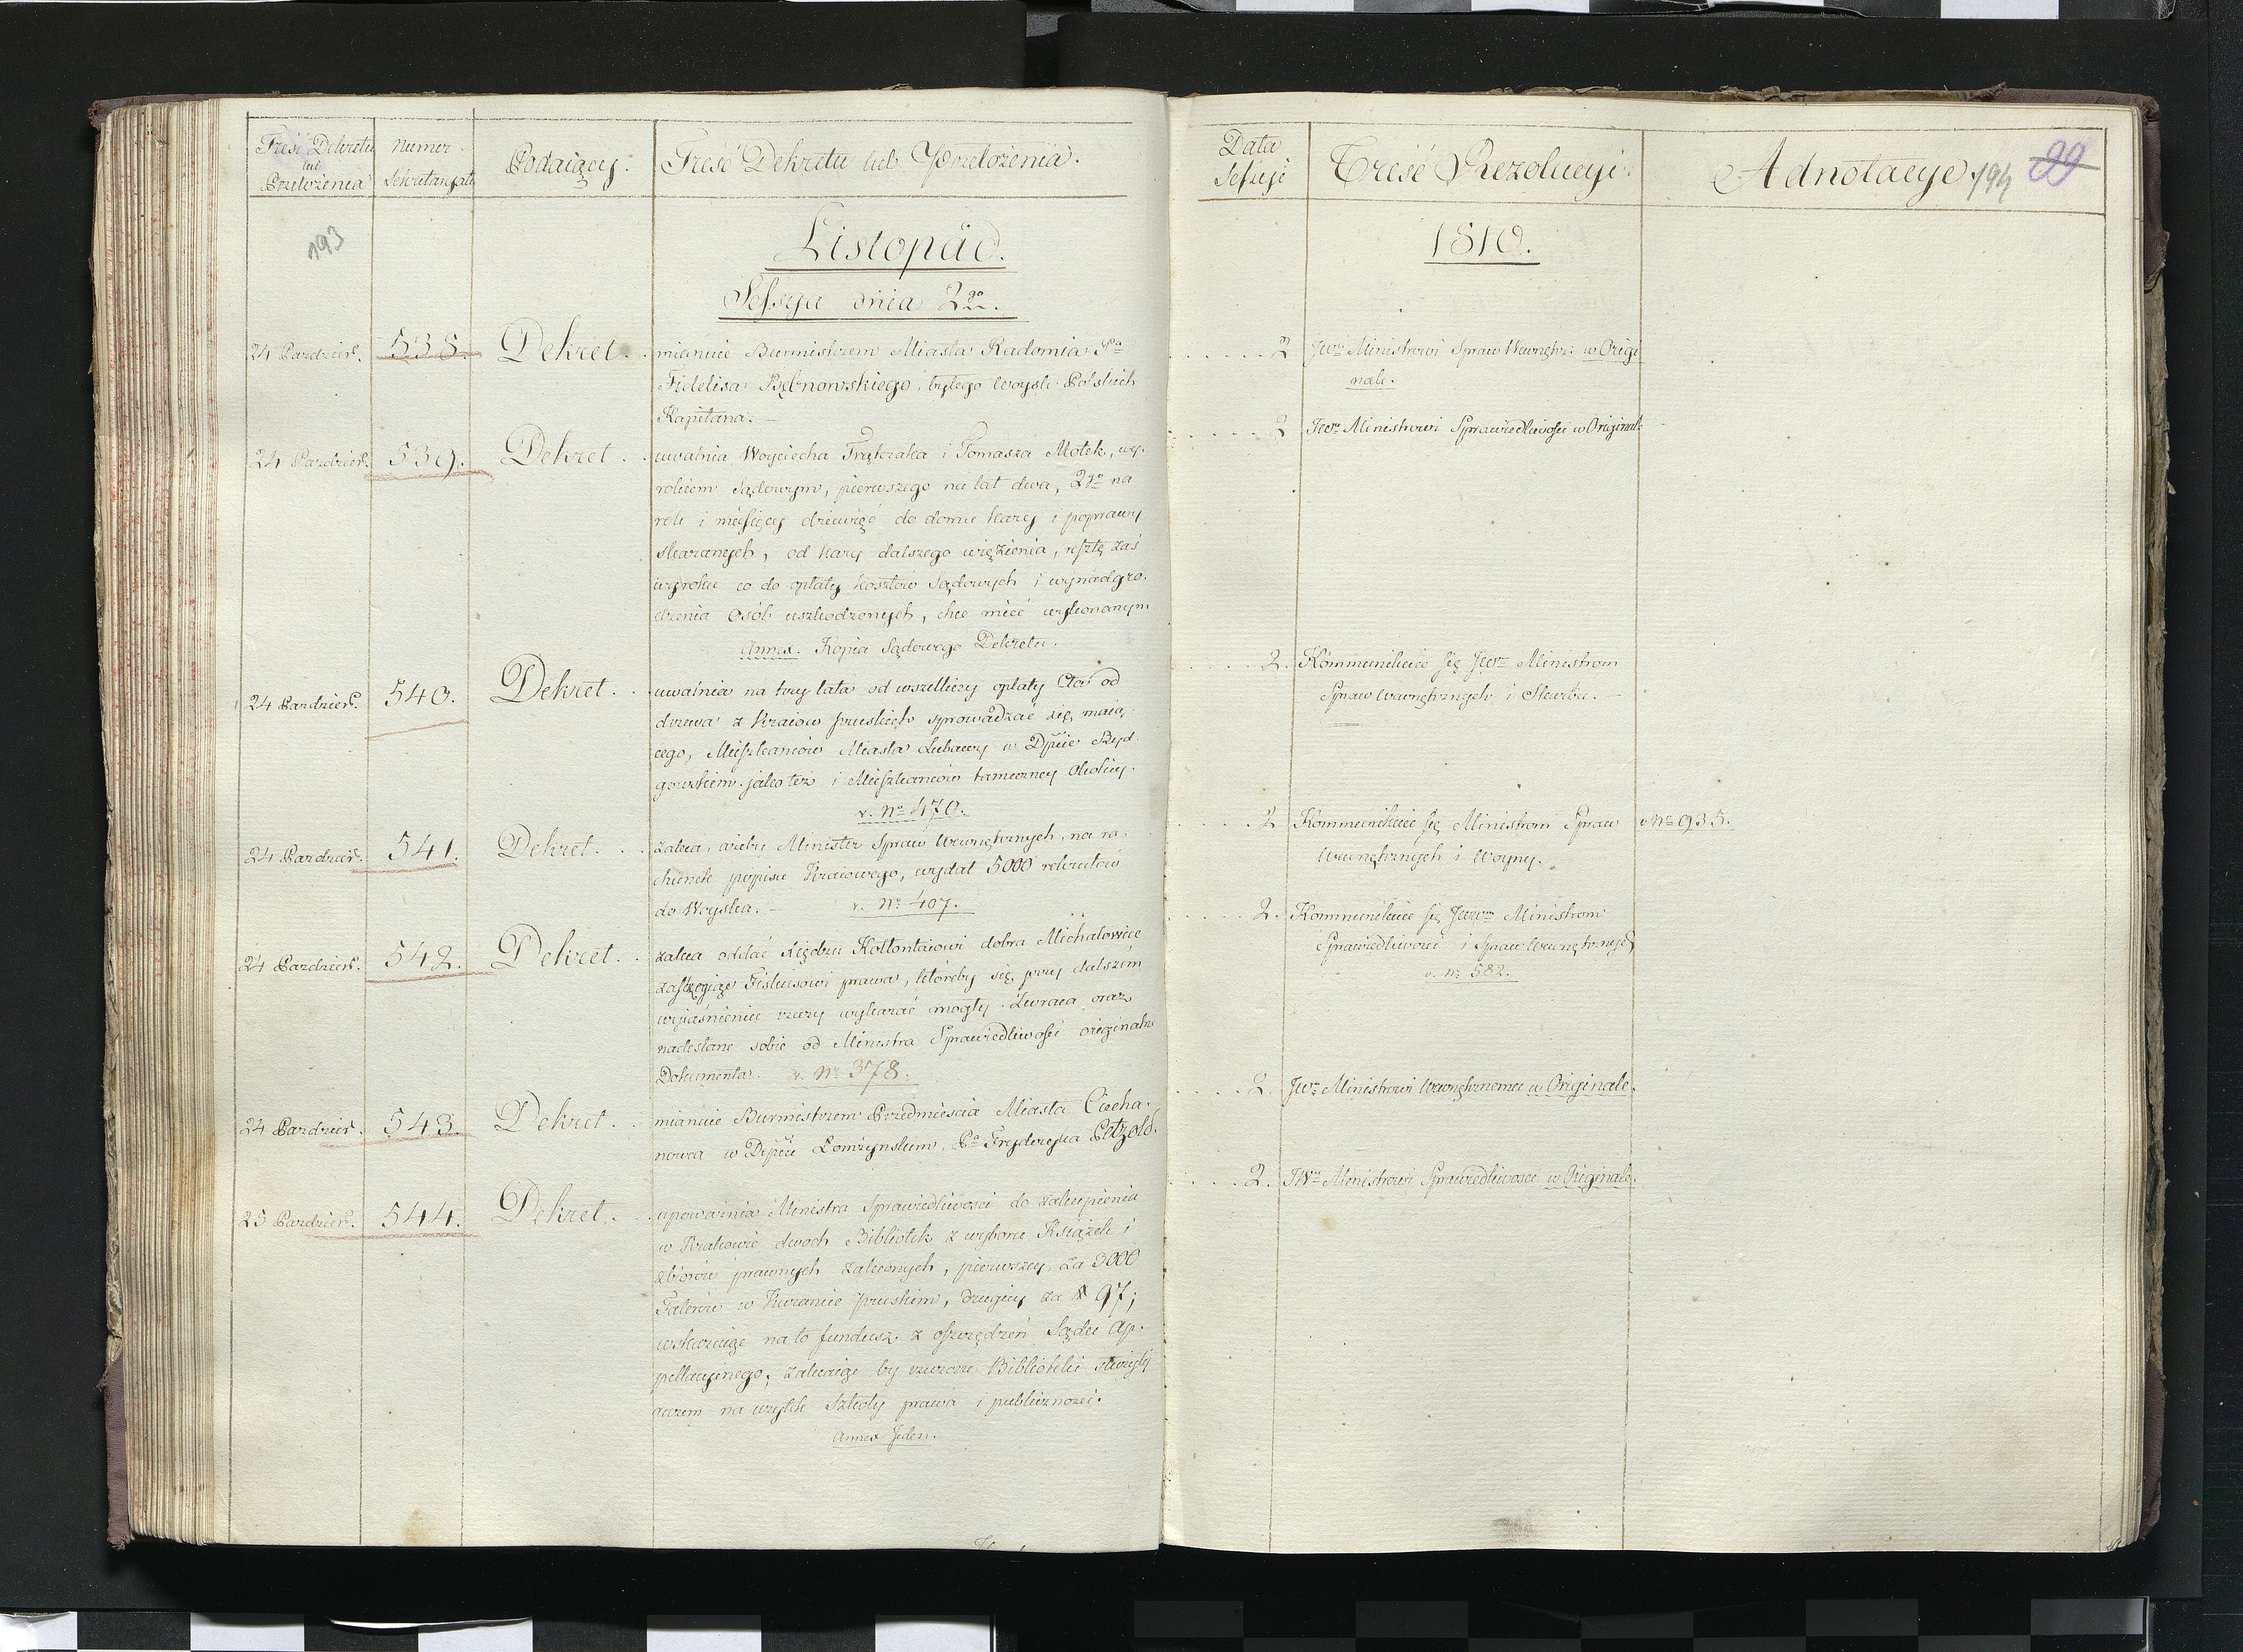 Treść Dekretu
lub
Przełożenia
Numer
Sekretaryatu
Podaiący.
Treść Dekretu lub Przełożenia.
193
Listopad.
Sessya dnia 2go.
24 Pazdzier. 538. Dekret. mianuie Burmistrzem Miasta Radomia Pa
Fidelisa byłego Woysk Polskich
Kapitana. —
24 Pazdzier. 539. Dekret. uwalnia Woyciecha i Tomasza Motek, wy-
rokiem Sądowym, pierwszego na lat dwa, 2go na
rok i miesięcy dziewięć do domu kary i poprawy
skazanych, od kary dalszego więzienia, resztę zaś
wyroku co do opłaty kosztów Sądowych i wynadgro-
dzenia Osób uszkodzonych, chce mieć wykonanym
Annex. Kopia Sądowego Dekretu.
24 Pazdzier. 540. Dekret. uwalnia na trzy lata od wszelkiey opłaty Cła od
drzewa z Kraiow pruskich sprowadzać się maią-
cego, Mieszkańców Miasta Lubawy w Dpcie Byd-
goskim jako też i Mieszkańców tameczney Okolicy.
v. No 470.
24 Pazdzier. 541. Dekret. zaleca, ażeby Minister Spraw Wewnętrznych, na ra-
chunek popisu Kraiowego, wydał 5000 rekrutów
do Woyska. — v. No 407.
24 Pazdzier. 542. Dekret. zaleca oddać Xiędzu Kołłontaiowi dobra Michałowice
zastrzegaiąc prawa, któreby się przy dalszém
wyiaśnieniu rzeczy wykazać mogły. Zwraca oraz
nadesłane sobie od Ministra Sprawiedliwości originalne
Dokumenta. v. No 378.
24 Pazdzier. 543. Dekret. mianuie Burmistrzem Przedmieścia Miasta Ciecha-
nowca w Dpcie Łomżynskim, Pa Fryderyka Petzold.
25 Pazdzier. 544. Dekret. upoważnia Ministra Sprawiedliwości do zakupienia
w Krakowie dwoch Bibliotek z wyboru Książek i
zbiorów prawnych zaleconych, pierwszey za 3000
Talerów w Kurancie pruskim, drugiey za # 97;
wskazuiąc na to fundusz z oszczędzeń Sądu Ap-
pellacyinego; zalecaiąc by rzeczone Biblioteki służyły
razem na użytek Szkoły prawa i publiczności.
Annex Jeden.
Data
Sessyi
Treść Rezolucyi.
Adnotacye.
194
99
1810.
2 Jwu Ministrowi Spraw Wewnętr: w Origi
nale.
2 Jwu Ministrowi Sprawiedliwości w Original:
2. Kommunikuie się Jww Ministrom
Spraw Wewnętrznych i Skarbu. —
2 Kommunikuie się Ministrom Spraw v No 935.
Wewnętrznych i Woyny.
2. Kommunikuie się Jww Ministrom
Sprawiedliwości i Spraw Wewnętrznych
v. No 582.
2. Jwu Ministrowi Wewnętrznemu w Originale.
2. JWu Ministrowi Sprawiedliwości w Originale.